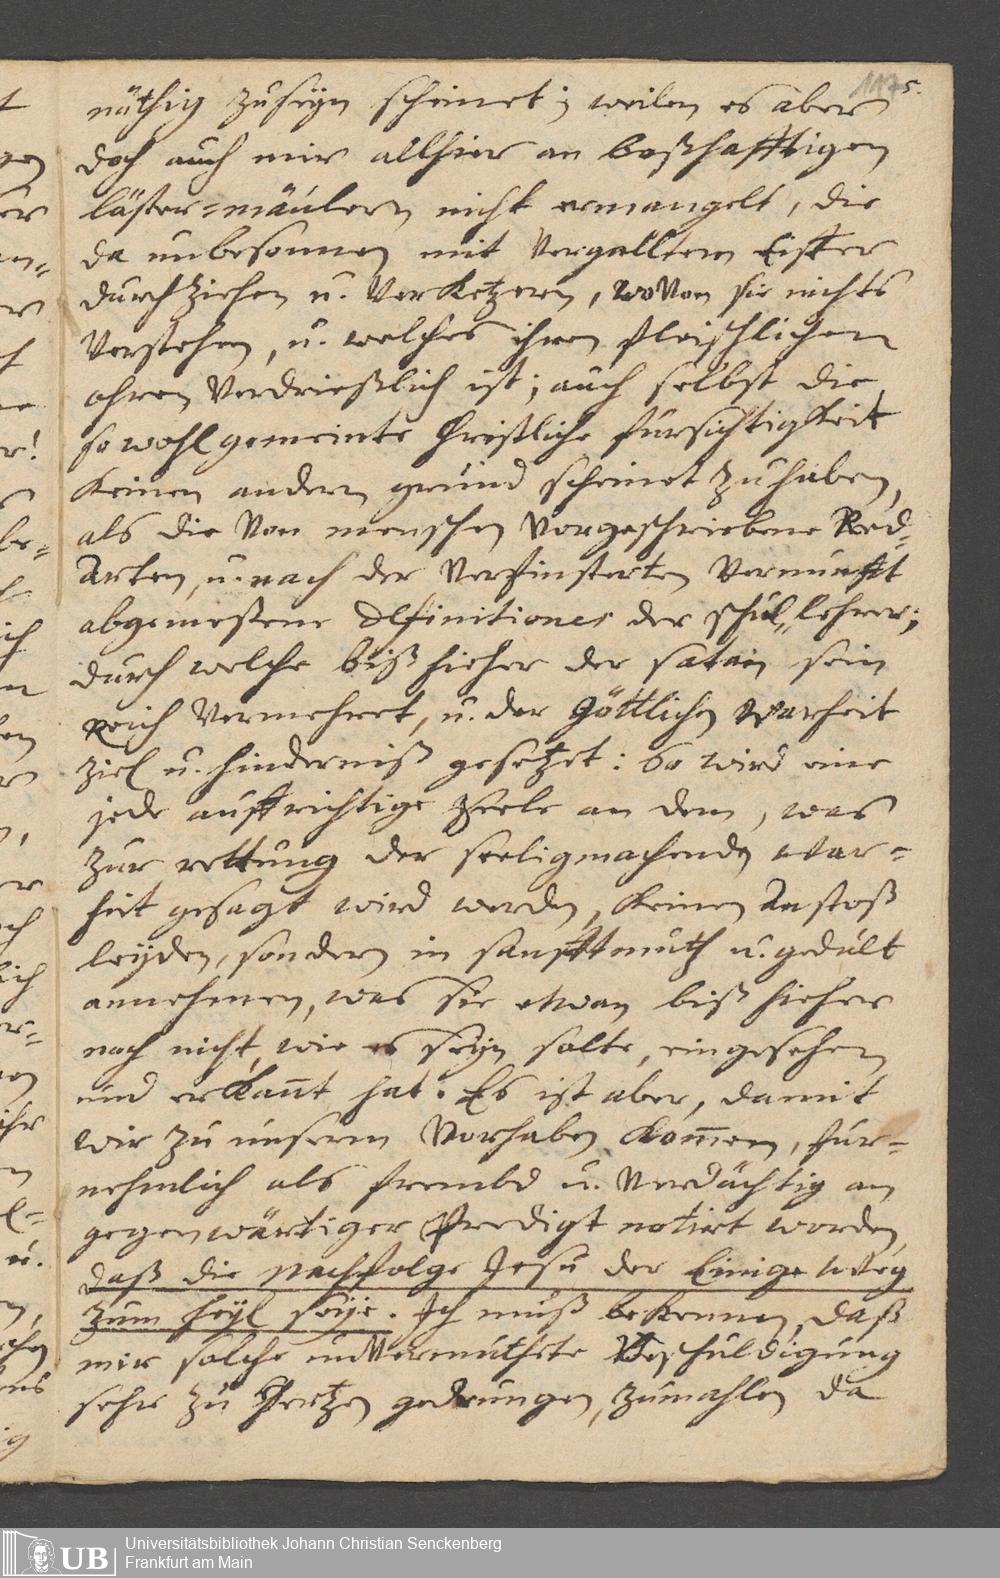 1175.
nöthig zuseyn scheinet; weilen es aber
doch auch mir allhier an boßhafftigen
läster-mäulern nicht ermangelt, die
da unbesonnen mit Vergalltem Eiffer
durchziehen u. Verketzern, woVon sie nichts
Verstehen, u. welches ihren fleischlichen
ohren Verdrießlich ist; auch selbst die
so wohlgemeinte Christliche fürsichtigkeit
keinen andern grund scheinet zuhaben,
als die Von menschen Vorgeschriebene Red-
Arten, u. nach der Verfinsterten Vernunfft
abgemeßene Definitiones der schul-lehrer;
durch welche biß hieher der satan sein
Reich Vermehret, u. der Göttlichen Warheit
ziel u. hinderniß gesetzet: So wird eine
jede auffrichtige Seele an dem, was
zur rettung der seeligmachenden War-
heit gesagt wird werden, keinen Anstoß
leyden, sondern in sanfftmuth u. gedult
annehmen, was sie etwan biß hieher
noch nicht, wie es seyn solte, eingesehen
und erkañt hat. Es ist aber, damit
wir zu unserm Vorhaben kom̃en, für-
nehmlich als frembd u. Verdächtig an
gegenwärtiger Predigt notirt worden,
daß die Nachfolge Jesu der Einige Weg
zum heyl seye. Ich muß bekennen, daß
mir solche unVermuthete Beschuldigung
sehr zu Hertzen gedrungen, zumahlen da
UB
Universitätsbibliothek Johann Christian Senckenberg
Frankfurt am Main